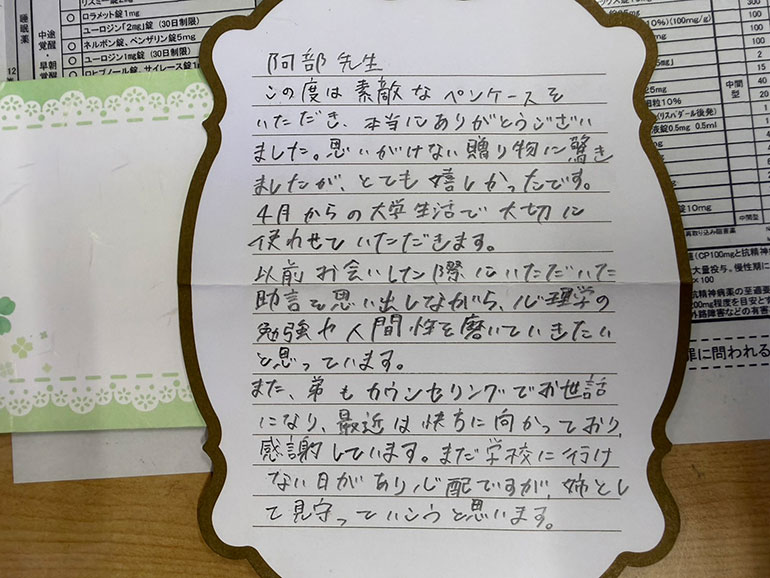 リスミー錠2mg
ロラメット錠1mg
ユーロジン「2mg」錠（30日制限）
ネルボン錠、ベンザリン錠5mg
ユーロジン1mg錠（30日制限）
ロヒプノール錠、サイレース錠1mg
睡眠薬
中途覚醒・早朝覚醒
阿部先生
この度は素敵なペンケースを
いただき、本当にありがとうござい
ました。思いがけない贈り物に驚き
ましたが、とても嬉しかったです。
4月からの大学生活で大切に
使わせていただきます。
以前お会いした際にいただいた
助言を思い出しながら、心理学の
勉強や人間性を磨いていきたい
と思っています。
また、弟もカウンセリングでお世話
になり、最近は快方に向かっており、
感謝しています。まだ学校に行け
ない日があり心配ですが、姉とし
て見守っていこうと思います。
10%)(100mg/g)
中間型
細粒10%
(リスパダール後発)
液錠0.5mg 0.5ml
錠10mg
中間型
(CP100mgと抗精神
大量投与。慢性期に
×100
抗精神病薬の至適要
200mg程度を目安とす
外路障害などの有害
罪に問われる